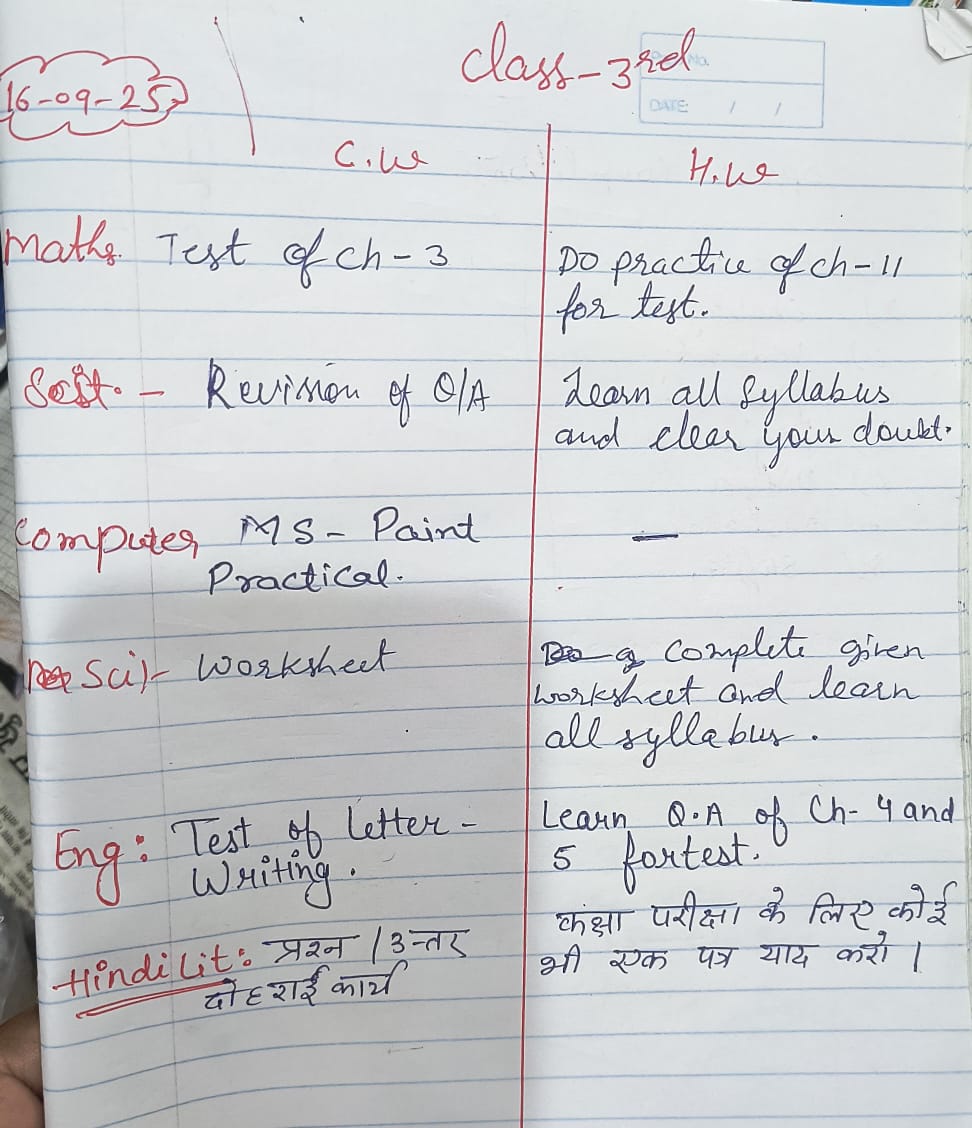 16-09-25
Class-3rd
DATE: / /
C.W
H.W
Maths. Test of ch-3
Do practice of ch-11
for test.
Revision of Q/A
Learn all syllabus
and clear your doubt.
Computer MS-Paint
Practical.
—
Sci)- Worksheet
Complete given
worksheet and learn
all syllabus.
Eng: Test of letter-
Writing.
Learn Q.A of Ch-4 and
5 for test.
Hindi Lit: प्रश्न / उत्तर
दोहराई कार्य
कक्षा परीक्षा के लिए कोई
भी एक पत्र याद करो ।